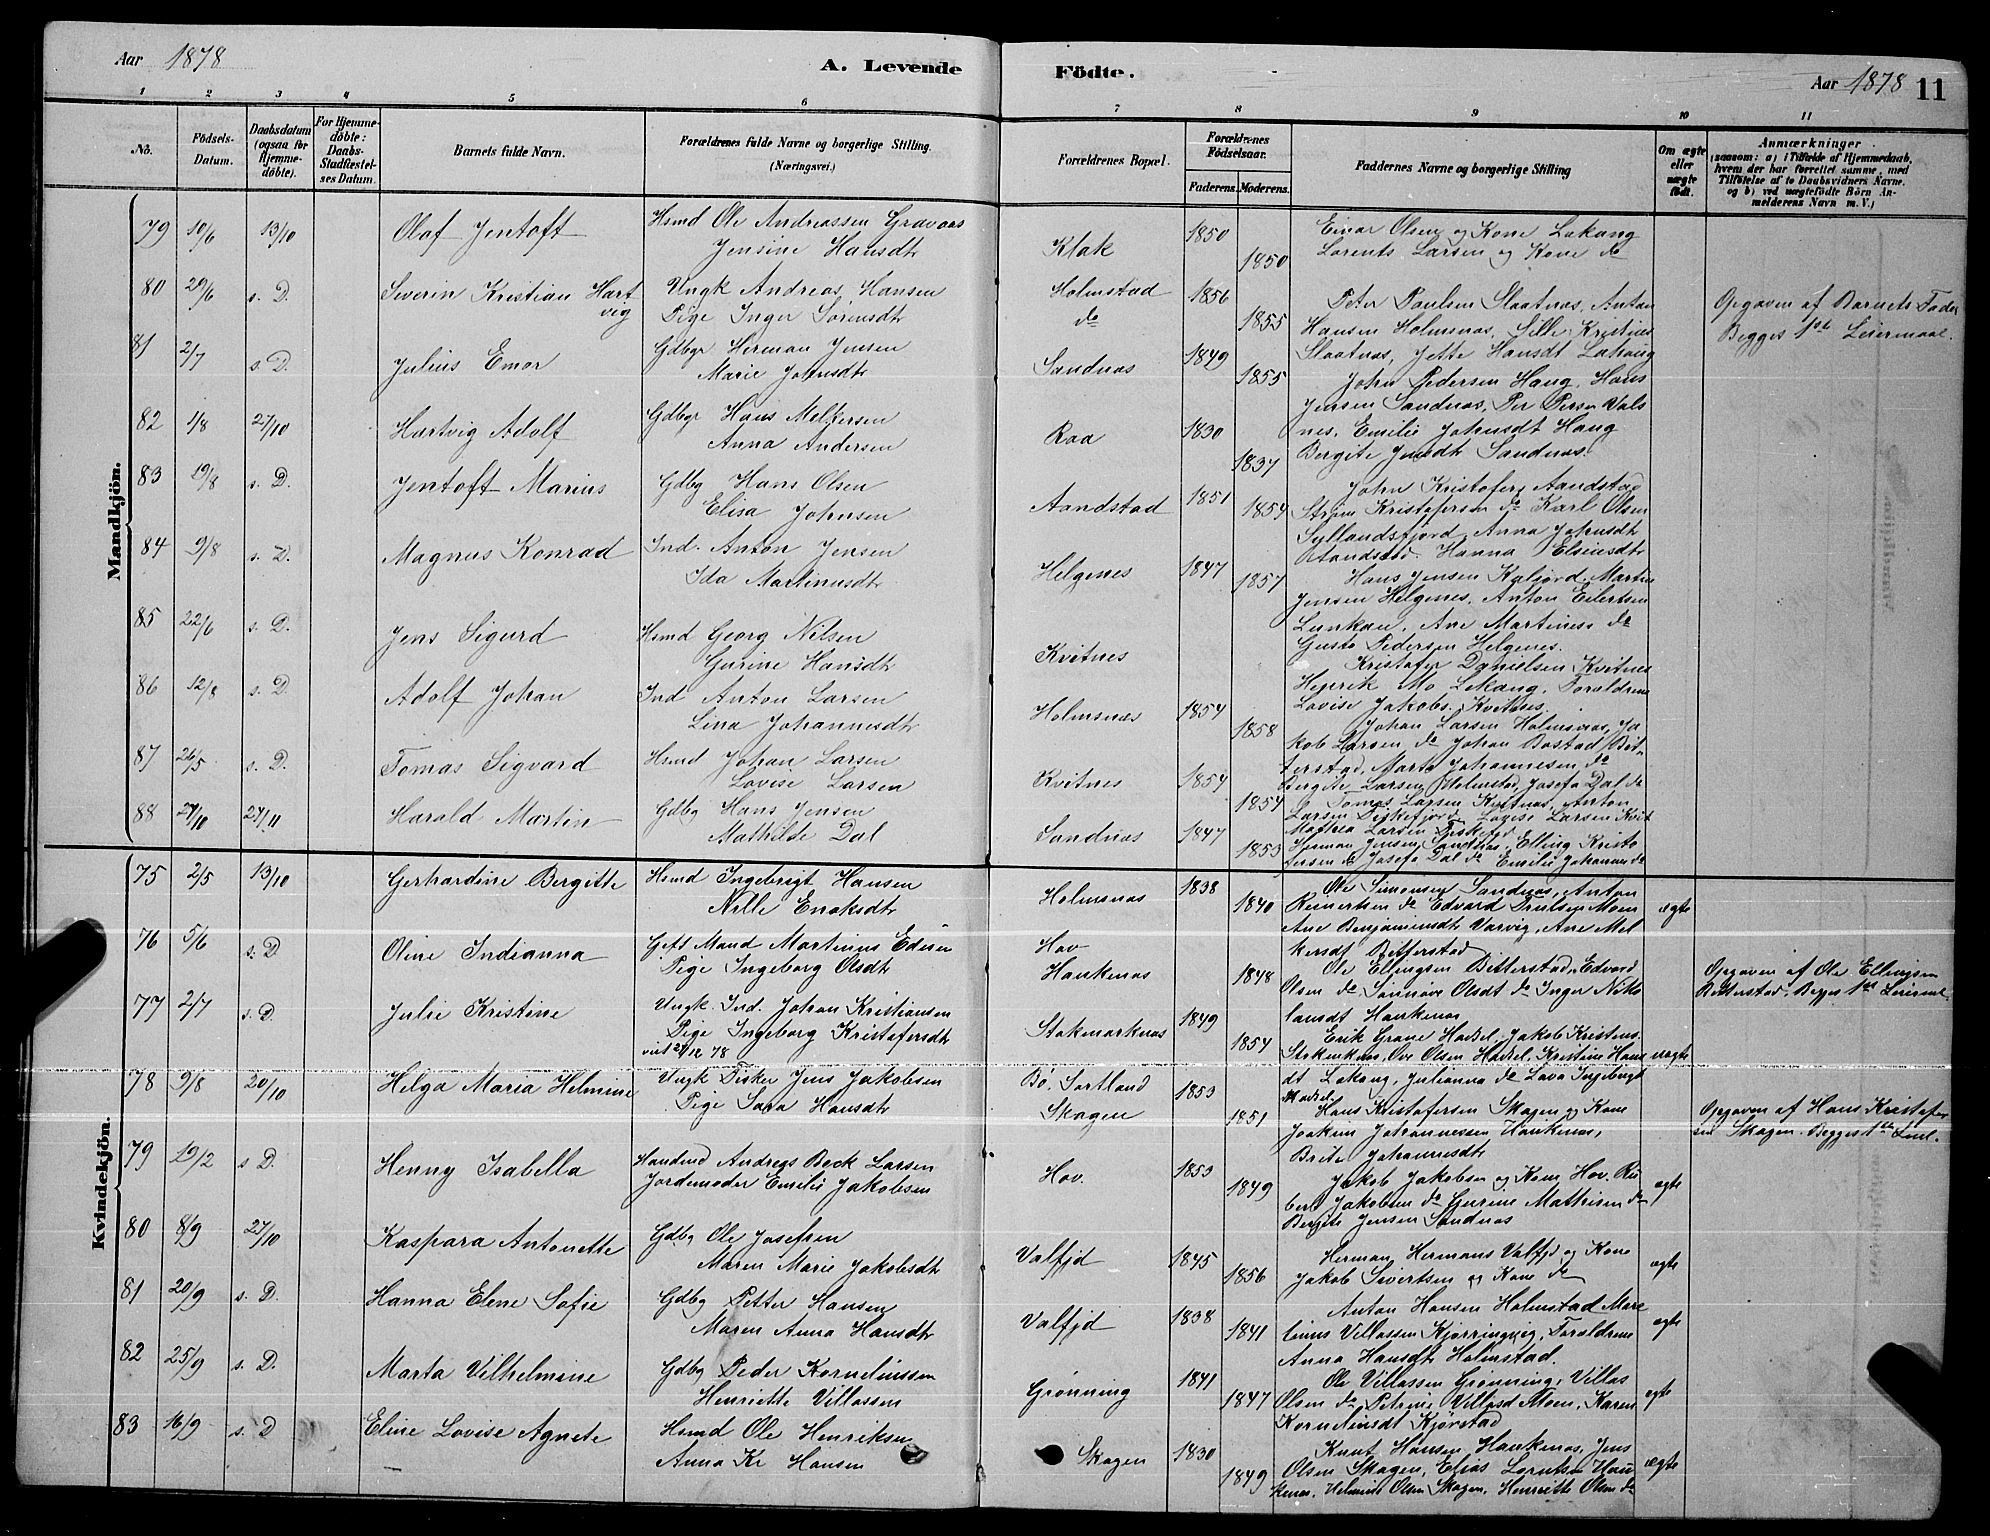 Aar 1878
A. Levende Fødte.
Aar 1878 11
1 2 3 4 5 6 7 8 9 10 11
No.
Fødsels-Datum.
Daabsdatum (ogsaa for Hjemme-døbte).
For Hjemme-døbte: Daabs-Stadfæstel-ses Datum.
Barnets fulde Navn.
Forældrenes fulde Navne og borgerlige Stilling. (Næringsvei.)
Forældrenes Bopæl.
Forældrenes Fødselsaar.
Faderens. Moderens.
Faddernes Navne og borgerlige Stilling
Om ægte eller uægte født.
Anmærkninger
(saasom: a) i Tilfælde af Hjemmedaab,
hvem der har forrettet samme, med
Tilføielse af to Daabsvidners Navne,
og b) ved uægtefødte Børn An-
melderens Navn m. V.)
Mandkjön.
79 10/6 13/10 Olaf Jentoft Hsmd Ole Andreassen Gravaas Klak 1850 Einar Olsen og Kone Lekang
Jensine Hansdtr 1850 Lorents Larsen og Kone do
80 29/6 s. D. Severin Kristian Hart Ungk Andreas Hansen Holmstad 1856 Peter Paulsen Slaatnæs, Anton Opgaven af Barnets Fader
vig Pige Inger Sørensdtr do 1855 Hansen Holmsnæs, Sille Kristines Begges 1ste Leiermaal.
81 2/7 s. D. Julius Emor Gdbgr Herman Jensen Sandnæs 1849 Slaatnæs, Jette Hansdt Lekang
Marie Johnsdtr 1855 John Pedersen Haug, Hans
Jensen Sandnæs, Per Persen Vals
82 1/8 27/10 Hartvig Adolf Gdbgr Hans Melkersen Raa 1830 nes, Emilie Johnsdt Haug
Anna Andersen 1837 Bergite Jensdtr Sandnæs.
83 19/8 s. D. Jentoft Marius Gdbg Hans Olsen Aandstad 1851 John Kristofers Aandstad
Elisa Johnsen 1854 Kristofersen do Karl Olsen
84 9/8 s. D. Magnus Konrad Ind. Anton Jensen Helgenes 1847 Anna Johnsdt
Ida Martinusdtr 1857 Hanna
Hans Jensen Kaljord, Martin
Jensen Helgenes, Anton Eilertsen
85 22/6 s. D. Jens Sigurd Hsmd Georg Nilsen Kvitnes Lunkan, Ane Martines do
Gurine Hansdtr Pedersen Helgenes.
Kristofer Danielsen Kvitnes
86 12/8 s. D. Adolf Johan Ind Anton Larsen Holmsnæs 1854 Henrik Mo Lekang, Forældrene
Lina Johannesdtr 1858 Lovise Jakobs. Kvitnes.
Johan Larsen Holmsnæs, Ja
87 26/5 s. D. Tomas Sigvard Hsmd Johan Larsen Kvitnes 1854 kob Larsen do Johan Bostad Bit
Lovise Larsen 1854 terstad, Marta Johannesen do
Bergite Larsen Holmstad, Josefa Dal do
88 27/10 24/11 Harald Martin Gdbg Hans Jensen Sandnæs 1847 Tomas Larsen Kvitnæs, Anton
Mathilde Dal 1853 Larsen Lovise Larsen Kvit
Mathea Larsen
Herman Jensen Sandnæs, Elling Kristo
fersen do Josefa Dal do Emilie Johannes do
Kvindekjön.
75 2/5 13/10 Gerhardine Bergitte Hsmd Ingebrigt Hansen Holmsnæs 1838 Ole Simonsen Sandnæs, Anton
Nille Enoksdtr 1840 Reinertsen do Edvard Trulsen Moen ægte
Ane Benjaminsdt Varvig, Ane Mel
76 5/6 s. D. Oline Indianna Gift Mand Martinus Edisen Hov kersdt Bitterstad
Pige Ingeborg Olsdtr Haukenæs 1848 Ole Ellingsen Bitterstad, Edvard Opgaven af Ole Ellingsen
Olsen do Sønnøve Olsdt do Inger Bitterstad. Begges 1ste
77 2/7 s. D. Julie Kristine Ungk. Ind. Johan Kristiansen Stokmarknæs 1849 Haukenæs
Pige Ingeborg Kristofersdtr 1854 Erik Grane Hadsel, Jakob Kristens.
viet 27/12 78 Ove Olsen Hadsel, Kristine Hans uægte
78 9/8 20/10 Helga Maria Helmine Ungk Fisker Jens Jakobsen Bø. Sortland 1853 dt Lekang, Julianna do Lava Ingebrigt
Pige Sara Hansdtr Skagen 1851 Hadsel
Hans Kristofersen Skagen og Kone Opgaven af Hans Kristofer
Joakim Johannessen Haukenæs, sen Skagen. Begges 1ste
79 19/2 s. D. Henny Isabella Andreas Beck Larsen Hov. 1853 Brite Johannesdtr
Jordemoder Emilie Jakobsen 1849 Jakob Jakobsen og Kone Hov. Ru
bert Jakobsen do Gurine Mathisen do ægte
Bergite Jensen Sandnæs
80 8/9 27/10 Kaspara Antonette Gdbg Ole Josefsen Valfjd 1845 Herman Hermans Valfjd og Kone
Maren Marie Jakobsdtr 1856 Jakob Sivertsen og Kone do ægte
81 20/9 s. D. Hanna Elene Sofie Gdbg Petter Hansen Valfjd 1838 Anton Hansen Holmstad Mare
Maren Anna Hansdtr 1841 linus Villassen Kjørringvig, Forældrene ægte
Anna Hansdtr Holmstad.
82 25/9 s. D. Marta Vilhelmine Gdbg Peder Kornelinssen Grønning 1841 Ole Villassen Grønning, Villas
Henriette Villassen 1847 Olsen do Petrine Villasd Moen, Karen ægte
Kornelinsdt Kjørstad
83 16/9 s. D Eline Lovise Agnete Hsmd Ole Henriksen Skagen 1830 Knut Hansen Haukenæs, Jens
Anna Kr Hansen 1849 Olsen Skagen, Elias Lorntsen Hau ægte
kenæs, Helmine Olsen Skagen, Henriette Olsen do